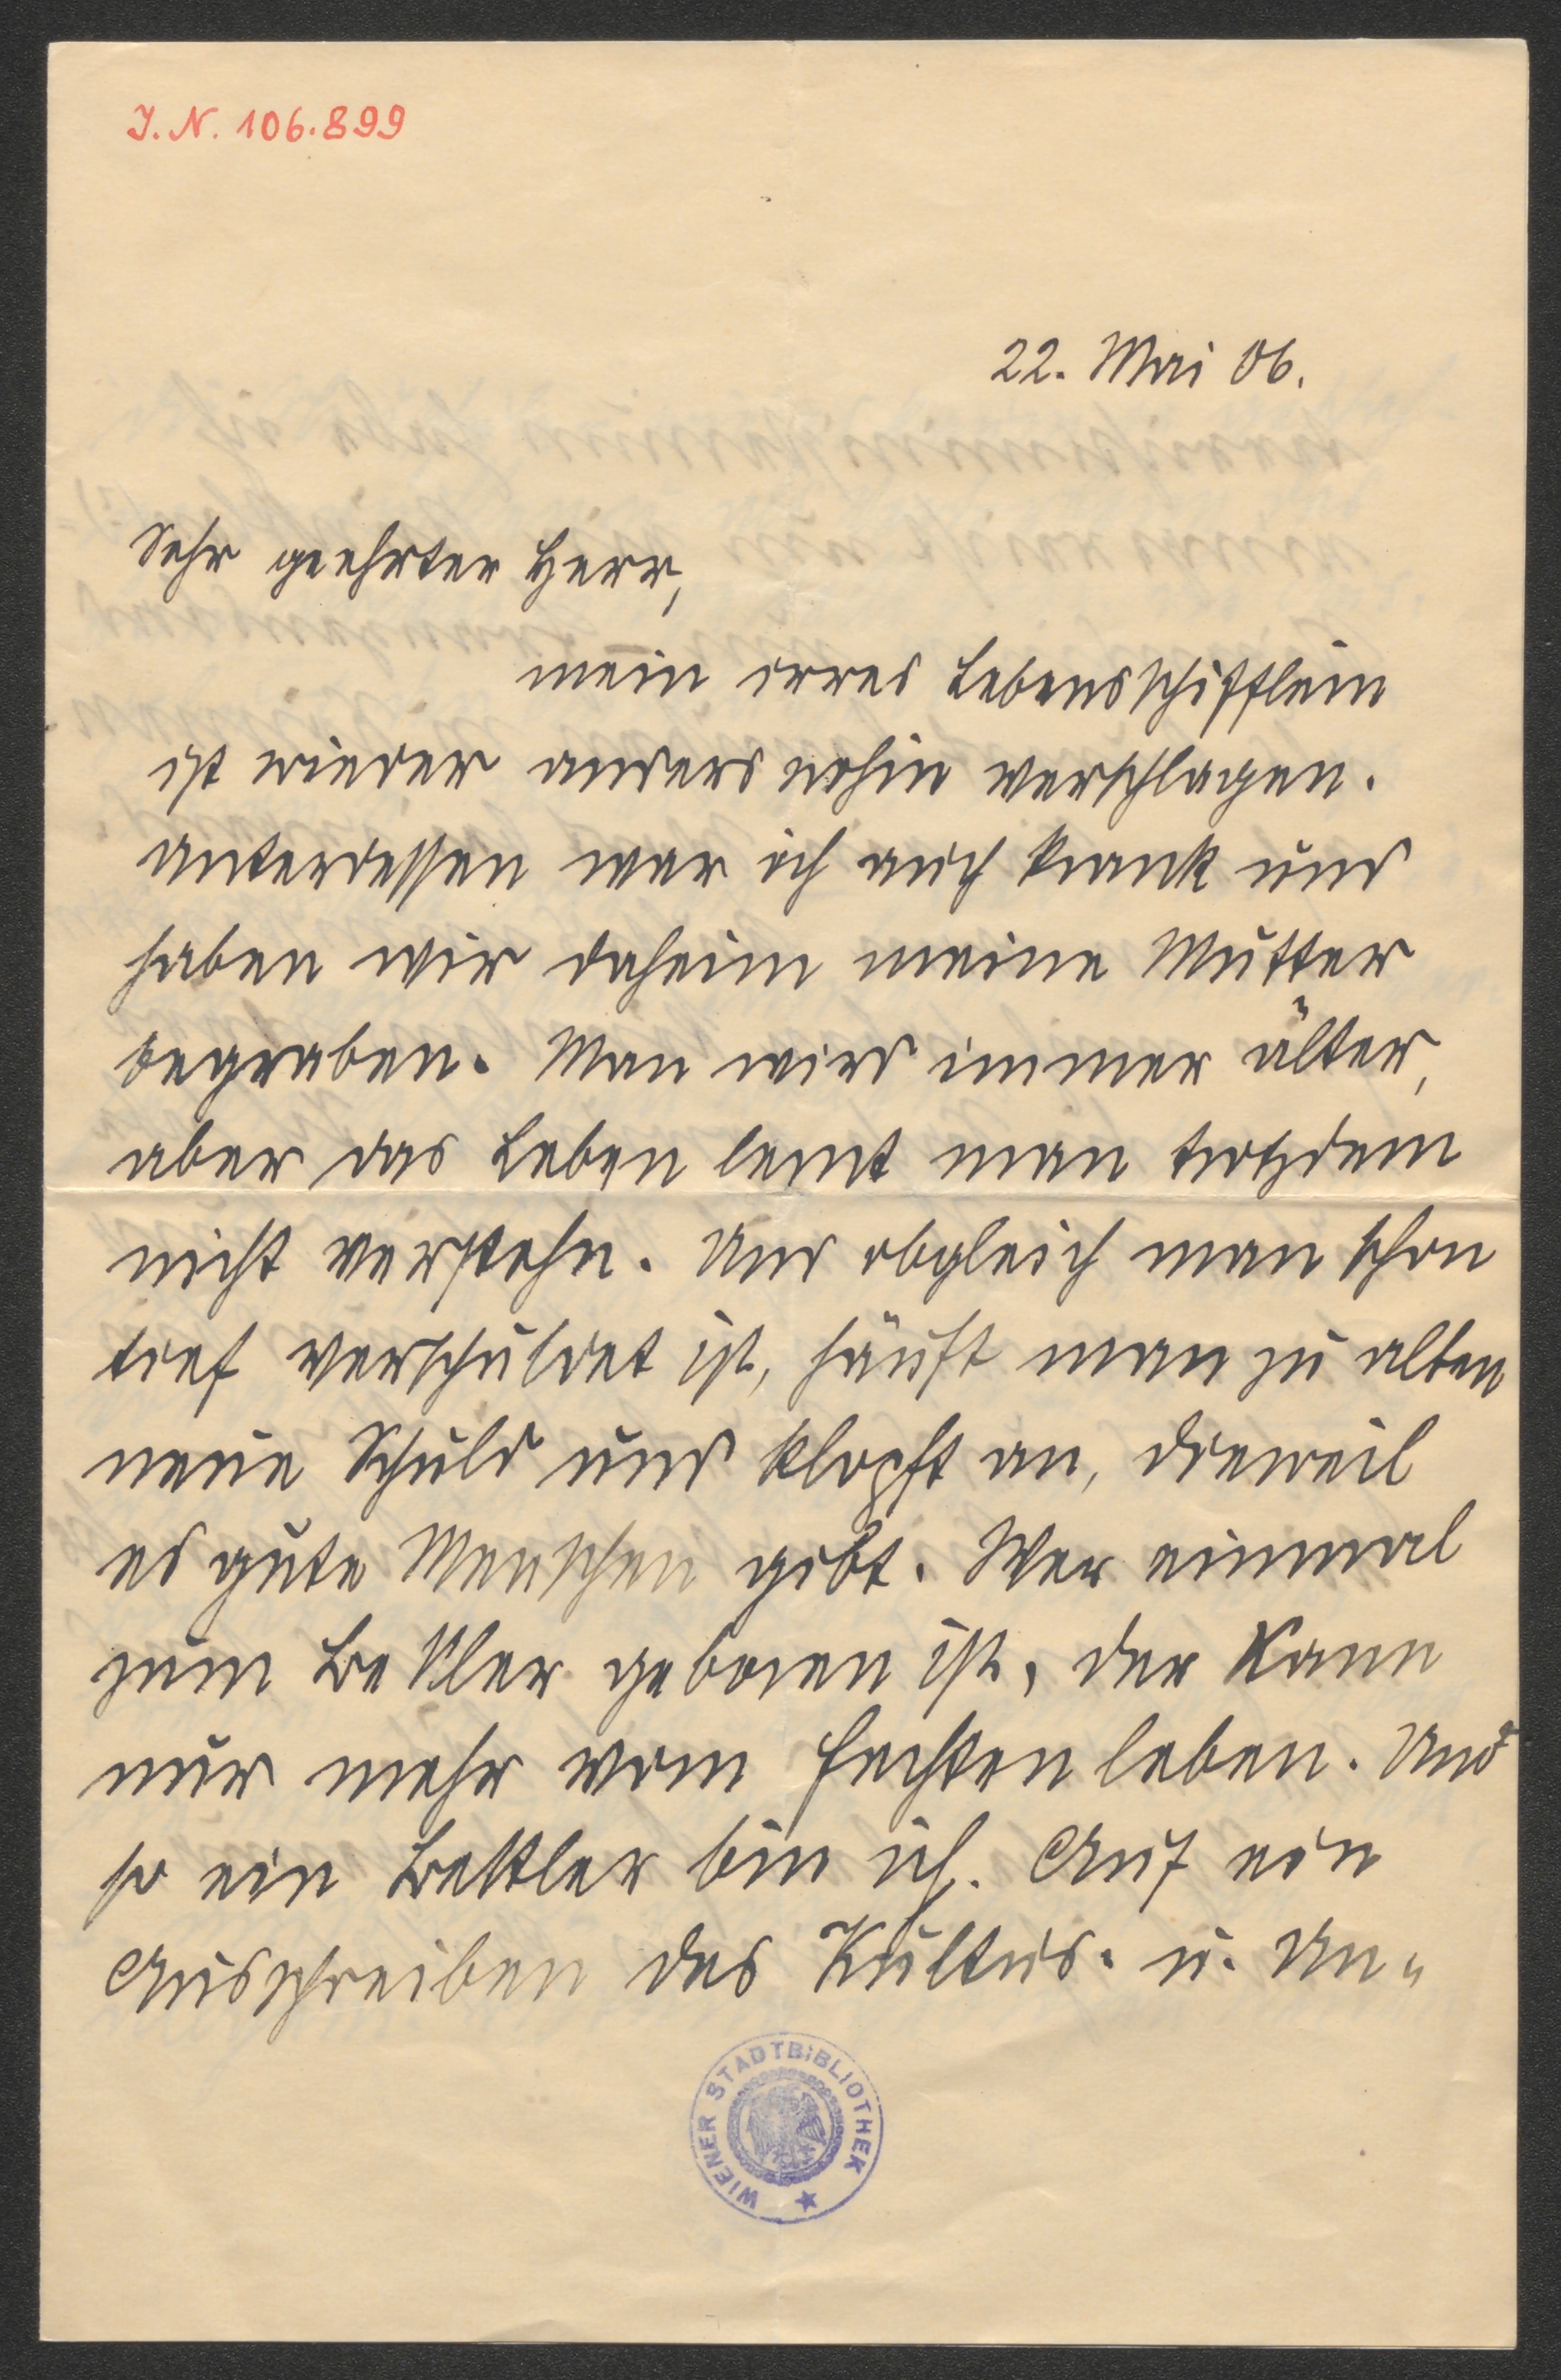 I. N. 106.899
22. Mai 06.
Sehr geehrter Herr,
mein irres Lebensschifflein
ist wieder anders wohin verschlagen.
Unterdessen war ich auch krank und
haben wir daheim meine Mutter
begraben. Man wird immer älter,
aber das Leben lernt man trotzdem
nicht verstehn. Und obgleich man schon
tief verschuldet ist, häuft man zu alten
neue Schuld und klopft an, dieweil
es gute Menschen gibt. Wer einmal
zum Bettler geboren ist, der kann
nur mehr vom Fechten leben. Und
so ein Bettler bin ich. Auf ein
Ausschreiben des Kultus- u. Un-
WIENER STADTBIBLIOTHEK